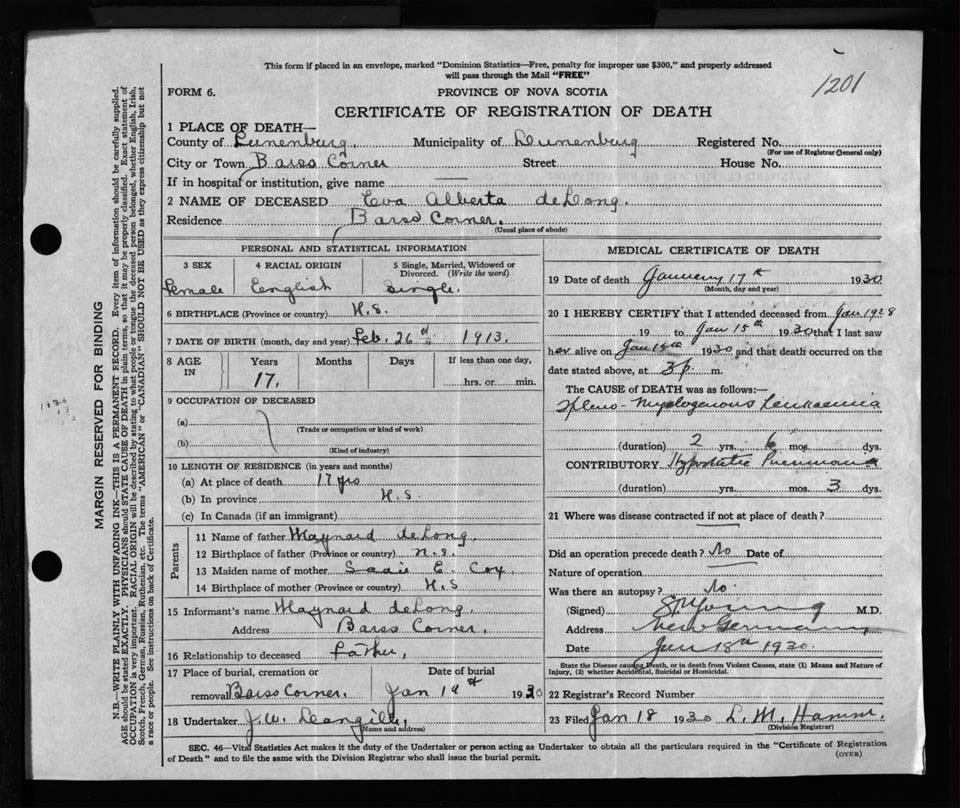 This form if placed in an envelope, marked "Dominion Statistics—Free, penalty for improper use $300," and properly addressed
will pass through the Mail "FREE"
1201
FORM 6. PROVINCE OF NOVA SCOTIA
CERTIFICATE OF REGISTRATION OF DEATH
1 PLACE OF DEATH—
County of Lunenburg. Municipality of Lunenburg Registered No.
(For use of Registrar General only)
City or Town Barss Corner Street House No.
If in hospital or institution, give name —
2 NAME OF DECEASED Eva Alberta deLong.
Residence Barss Corner.
(Usual place of abode)
PERSONAL AND STATISTICAL INFORMATION
3 SEX 4 RACIAL ORIGIN 5 Single, Married, Widowed or
Divorced. (Write the word)
Female English Single.
6 BIRTHPLACE (Province or country) N.S.
7 DATE OF BIRTH (month, day and year) Feb. 26th 1913.
8 AGE IN Years Months Days If less than one day,
17. hrs. or min.
9 OCCUPATION OF DECEASED
(a)
(Trade or occupation or kind of work)
(b)
(Kind of industry)
10 LENGTH OF RESIDENCE (in years and months)
(a) At place of death 17 yrs
(b) In province N.S.
(c) In Canada (if an immigrant)
Parents
11 Name of father Maynard deLong.
12 Birthplace of father (Province or country) N.S.
13 Maiden name of mother Sadie E. Cox,
14 Birthplace of mother (Province or country) N.S
15 Informant's name Maynard deLong.
Address Barss Corner.
16 Relationship to deceased Father,
17 Place of burial, cremation or Date of burial
removal Barss Corner. Jan 19th 1930
18 Undertaker J.W.
(Name and address)
MEDICAL CERTIFICATE OF DEATH
19 Date of death January 17th 1930
(Month, day and year)
20 I HEREBY CERTIFY that I attended deceased from Jan 1928
19 to Jan 15th 1930 that I last saw
her alive on Jan 15th 1930 and that death occurred on the
date stated above, at 3 p. m.
The CAUSE of DEATH was as follows:—
Spleno-Myelogenous Leukaemia
(duration) 2 yrs. 6 mos. dys.
CONTRIBUTORY Hypostatic Pneumonia
(duration) yrs. mos. 3 dys.
21 Where was disease contracted if not at place of death?
Did an operation precede death? No Date of
Nature of operation
Was there an autopsy? No
(Signed) Young M.D.
Address New Germany
Date Jan 18th 1930.
State the Disease causing Death, or in death from Violent Causes, state (1) Means and Nature of
Injury, (2) whether Accidental, Suicidal or Homicidal.
22 Registrar's Record Number
23 Filed Jan 18 1930 L. M. Hamm.
(Division Registrar)
SEC. 46—Vital Statistics Act makes it the duty of the Undertaker or person acting as Undertaker to obtain all the particulars required in the "Certificate of Registration
of Death" and to file the same with the Division Registrar who shall issue the burial permit.
(OVER)
MARGIN RESERVED FOR BINDING
N.B.—WRITE PLAINLY WITH UNFADING INK—THIS IS A PERMANENT RECORD. Every item of information should be carefully supplied.
AGE should be stated EXACTLY. PHYSICIANS should STATE CAUSE OF DEATH in plain terms, so that it may be properly classified. Exact statement of
OCCUPATION is very important. RACIAL ORIGIN will be described by stating to what people or tongue the deceased person belonged, whether English, Irish,
Scotch, French, German, Russian, Ruthenian, etc. The terms "AMERICAN" or "CANADIAN" SHOULD NOT BE USED as they express citizenship but not
a race or people. See instructions on back of Certificate.